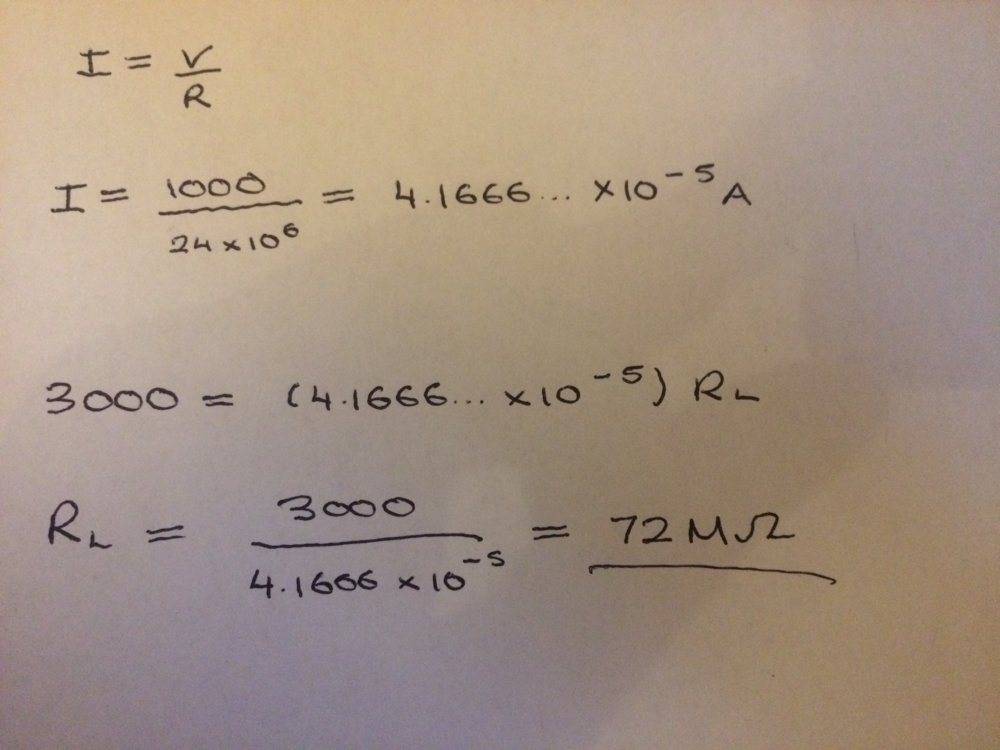 I = V/R
I = 1000/24×10⁶ = 4.1666... ×10⁻⁵ A
3000 = (4.1666... ×10⁻⁵) R_L
R_L = 3000/4.1666 ×10⁻⁵ = 72 MΩ